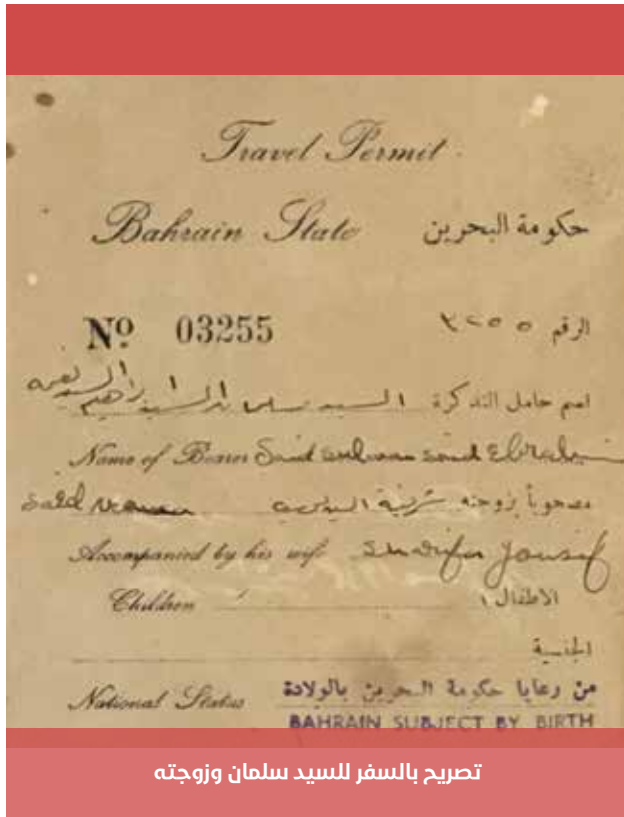 Travel Permit.
Bahrain State حكومة البحرين
Nº 03255 الرقم ٠٣٢٥٥
اسم حامل التذكرة السيد سلمان السيد ابراهيم السيد
Name of Bearer Said Sulman Said Ebrahim
Said مصحوباً بزوجته شريفة السيد
Accompanied by his wife Sharifa Yousif
Children الاطفال
الجنسية
National Status من رعايا حكومة البحرين بالولادة
BAHRAIN SUBJECT BY BIRTH
تصريح بالسفر للسيد سلمان وزوجته